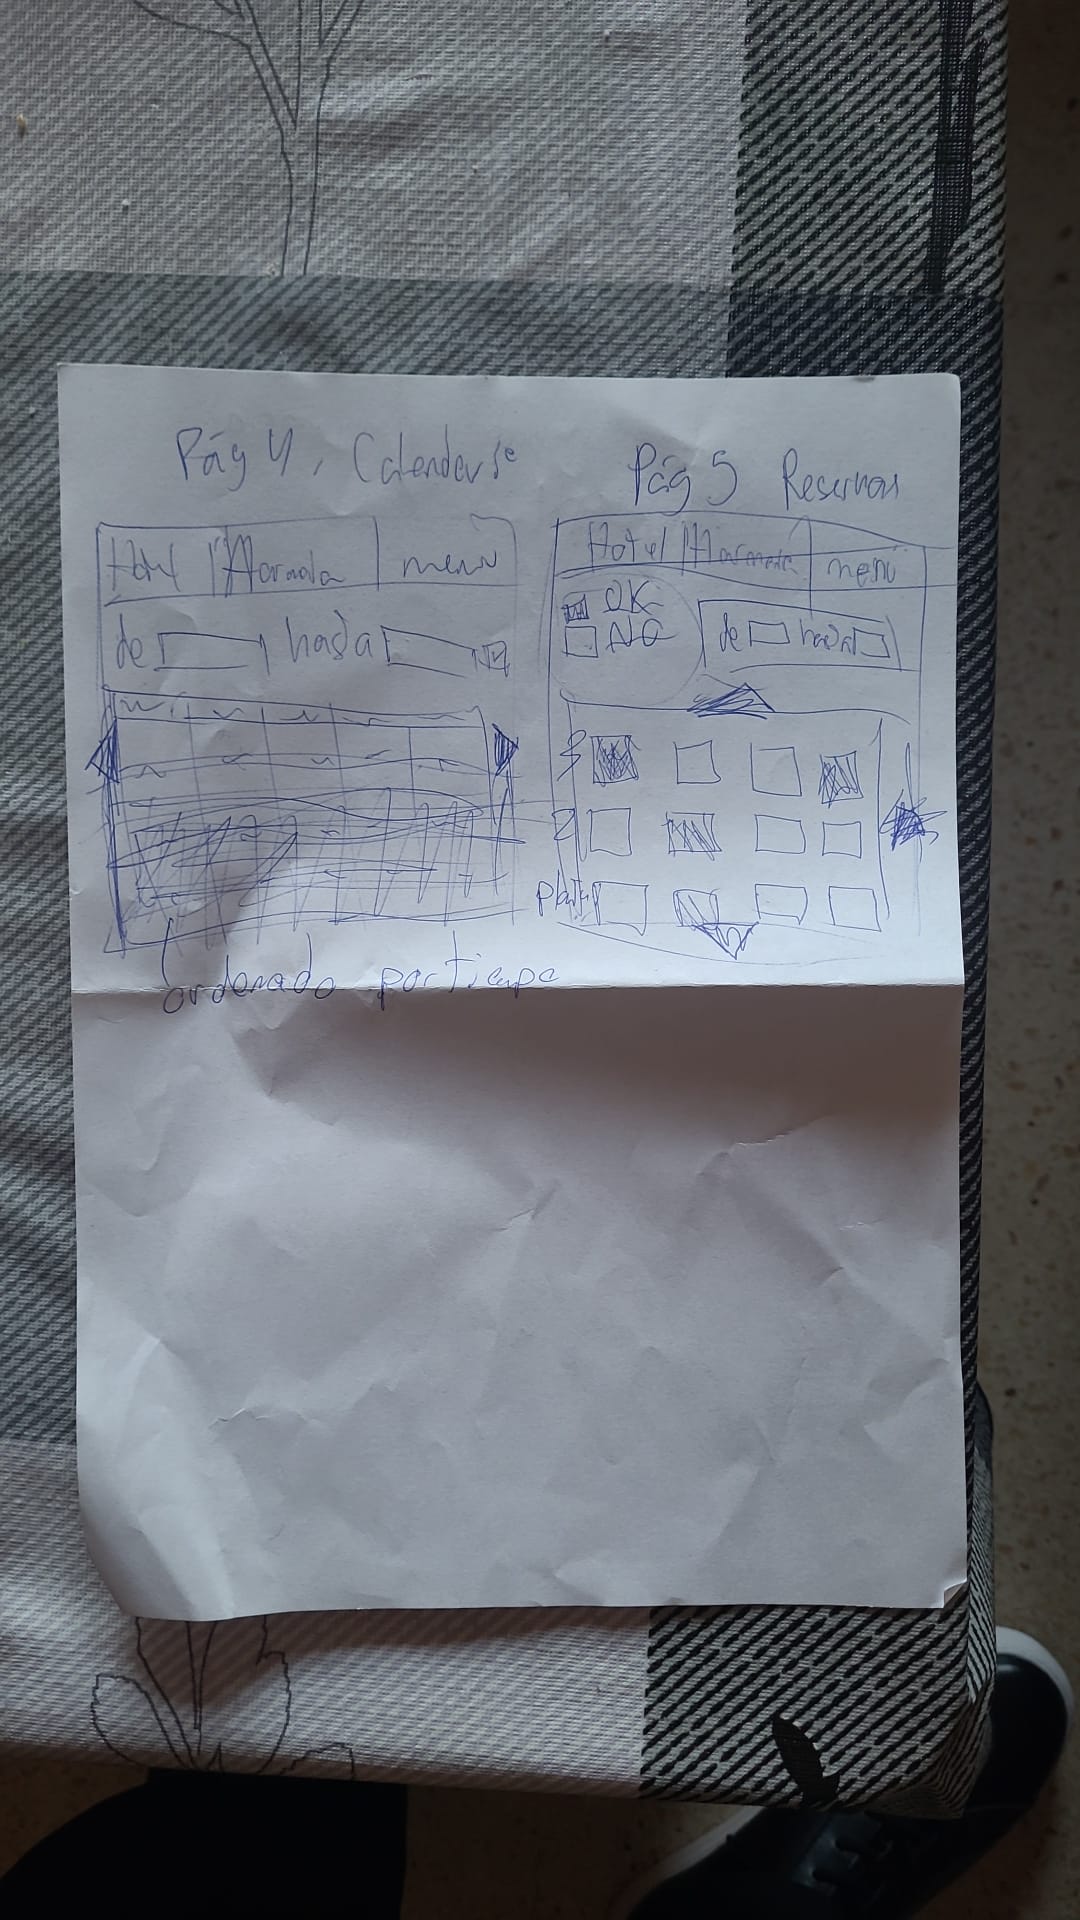 Pág 4, Calendarse
Hotel Marmola menu
de hasta
ordenado por tiempo
Pág 5 Reservas
Hotel menú
OK
NO
de hasta
3
2